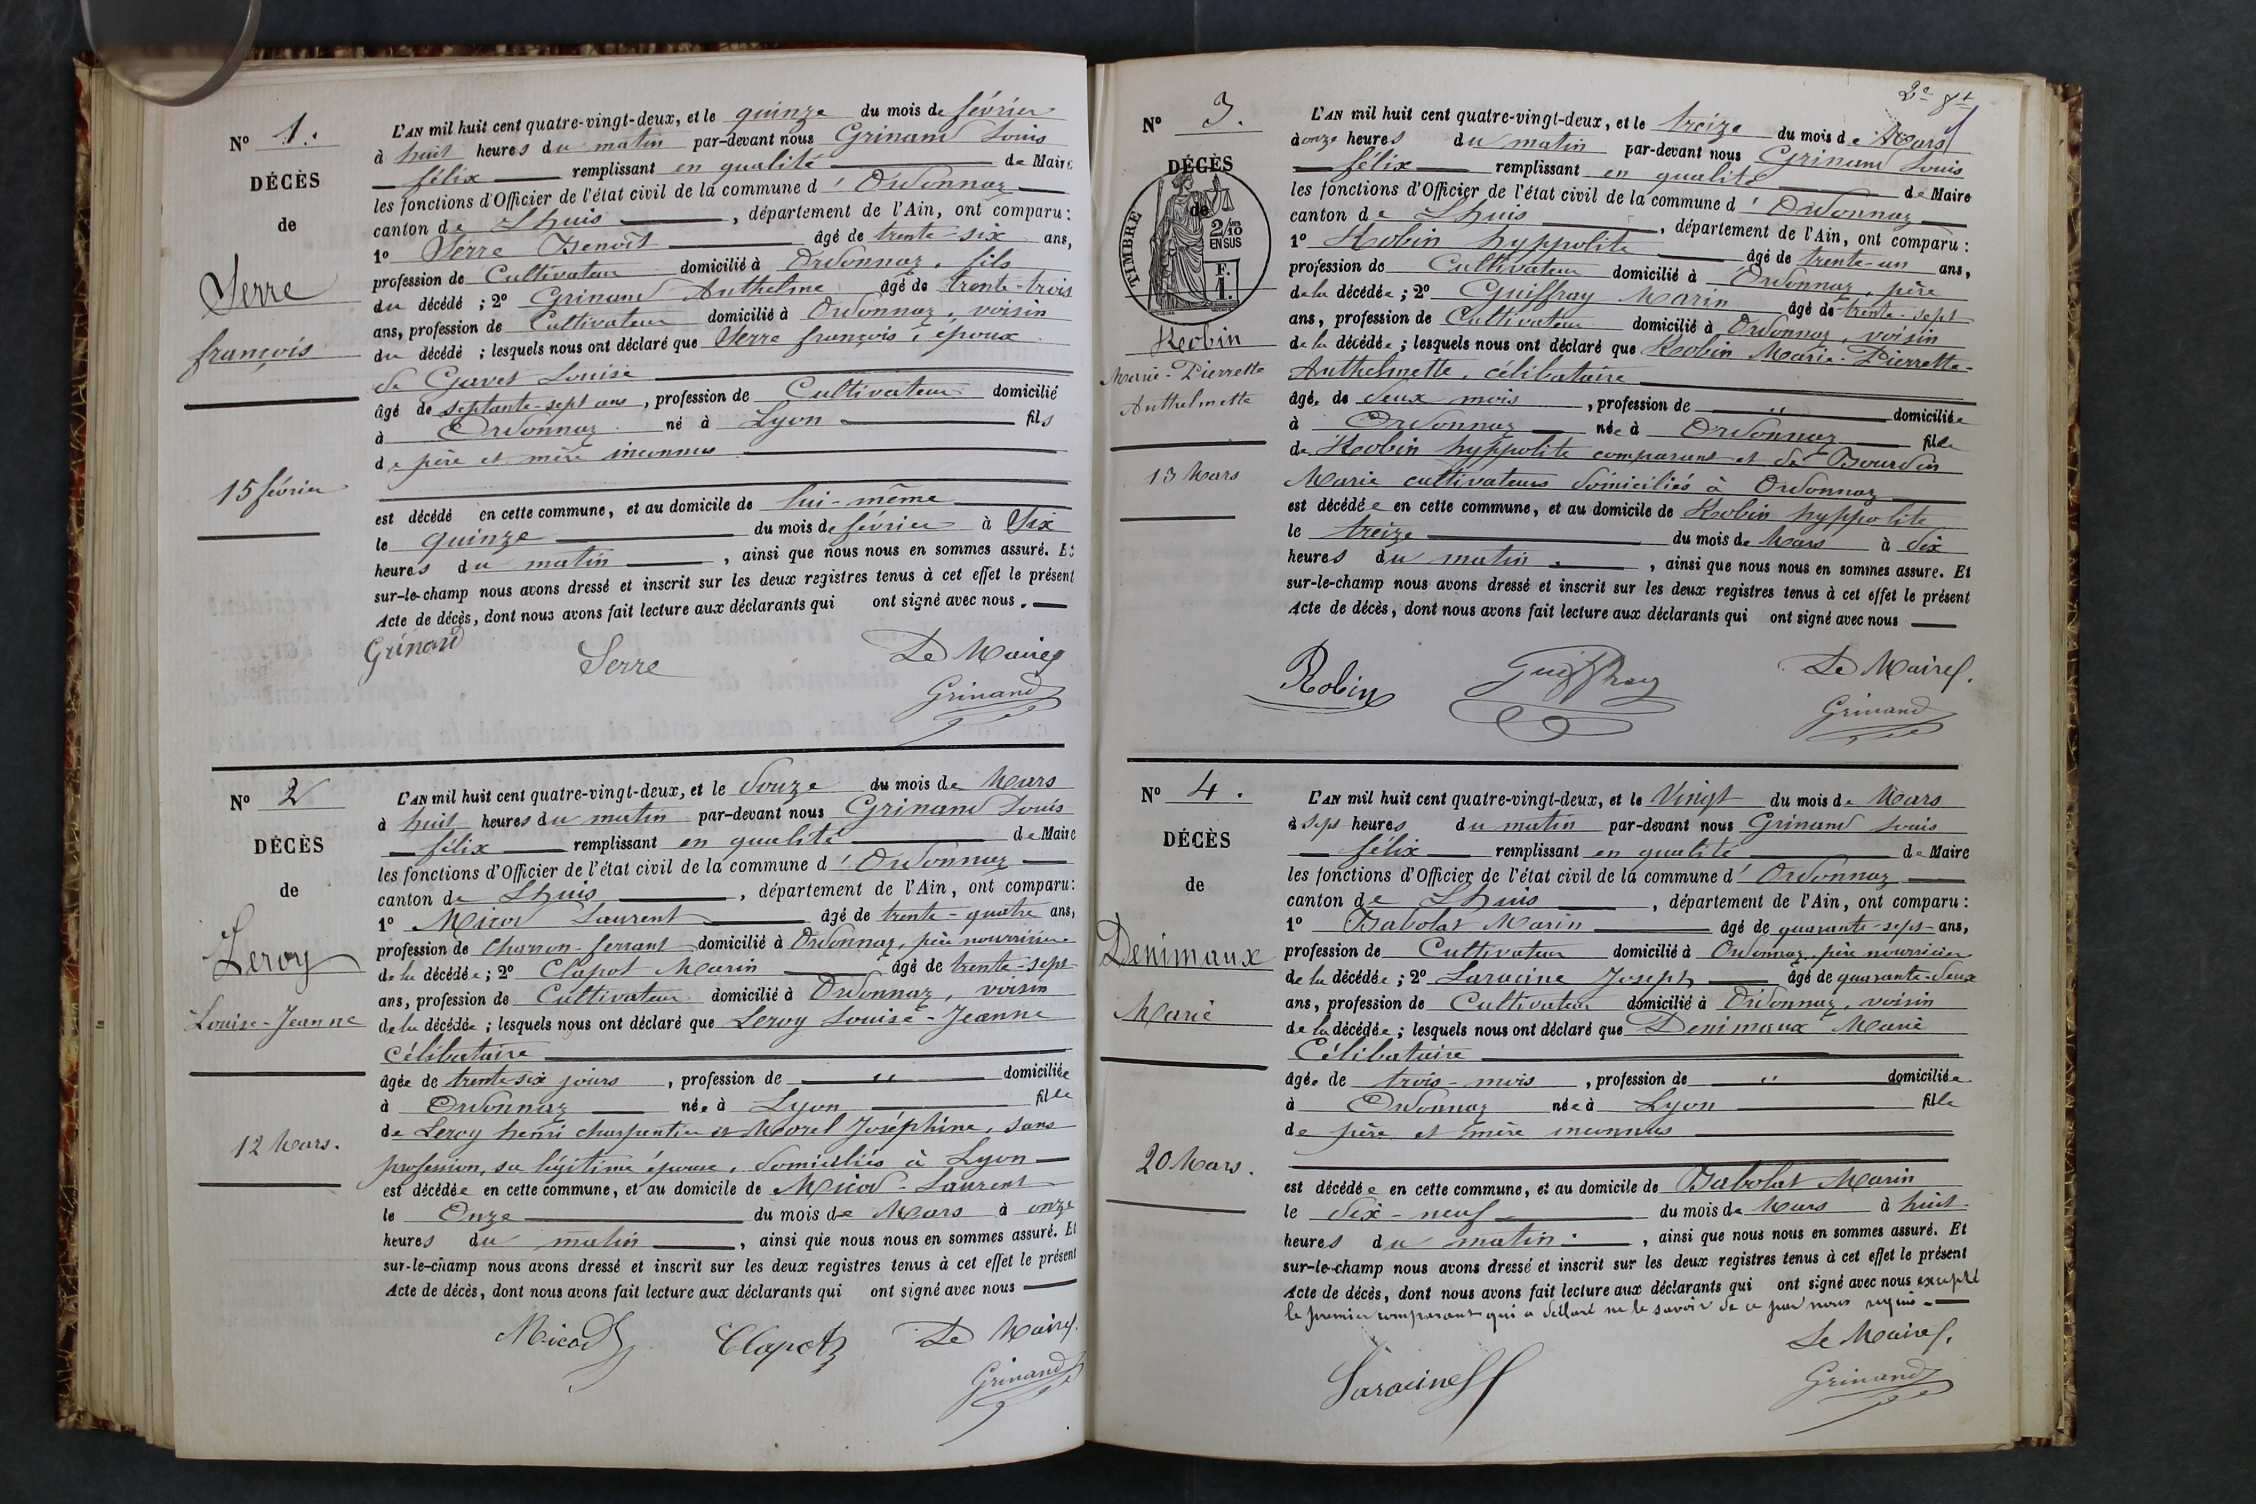 N° 1.
DÉCÈS
de
Serre
françois
15 février
L'AN mil huit cent quatre-vingt-deux, et le quinze du mois de février
à huit heures du matin par-devant nous Grinand Louis
félix remplissant en qualité de Maire
les fonctions d'Officier de l'état civil de la commune d'Ordonnaz
canton de Lhuis, département de l'Ain, ont comparu:
1° Serre Benoît âgé de trente-six ans,
profession de Cultivateur domicilié à Ordonnaz, fils
du décédé ; 2° Grinand Anthelme âgé de trente-trois
ans, profession de Cultivateur domicilié à Ordonnaz, voisin
du décédé ; lesquels nous ont déclaré que Serre françois, époux
de Gavet Louise
âgé de septante-sept ans, profession de Cultivateur domicilié
à Ordonnaz né à Lyon fils
de père et mère inconnus
est décédé en cette commune, et au domicile de lui-même
le quinze du mois de février à Six
heures du matin, ainsi que nous nous en sommes assuré. Et
sur-le-champ nous avons dressé et inscrit sur les deux registres tenus à cet effet le présent
Acte de décès, dont nous avons fait lecture aux déclarants qui ont signé avec nous.
Grinand Serre Le Maire
Grinand
N° 2
DÉCÈS
de
Leroy
Louise-Jeanne
12 Mars.
L'AN mil huit cent quatre-vingt-deux, et le douze du mois de Mars
à huit heures du matin par-devant nous Grinand Louis
félix remplissant en qualité de Maire
les fonctions d'Officier de l'état civil de la commune d'Ordonnaz
canton de Lhuis, département de l'Ain, ont comparu:
1° Micod Laurent âgé de trente-quatre ans,
profession de Charron-ferrant domicilié à Ordonnaz, père nourricier
de la décédée ; 2° Clapot Marin âgé de trente-sept
ans, profession de Cultivateur domicilié à Ordonnaz, voisin
de la décédée ; lesquels nous ont déclaré que Leroy Louise-Jeanne
Célibataire
âgée de trente six jours, profession de " domiciliée
à Ordonnaz née à Lyon fille
de Leroy henri charpentier et Morel Joséphine, sans
profession, sa légitime épouse, domiciliés à Lyon
est décédée en cette commune, et au domicile de Micod-Laurent
le Onze du mois de Mars à onze
heures du matin, ainsi que nous nous en sommes assuré. Et
sur-le-champ nous avons dressé et inscrit sur les deux registres tenus à cet effet le présent
Acte de décès, dont nous avons fait lecture aux déclarants qui ont signé avec nous
Micod Clapot Le Maire
Grinand
2e
N° 3.
DÉCÈS
de
TIMBRE
2/10
EN SUS
F.
1.
Robin
Marie-Pierrette
Anthelmette
13 Mars
L'AN mil huit cent quatre-vingt-deux, et le treize du mois de Mars
à onze heures du matin par-devant nous Grinand Louis
félix remplissant en qualité de Maire
les fonctions d'Officier de l'état civil de la commune d'Ordonnaz
canton de Lhuis, département de l'Ain, ont comparu:
1° Robin hyppolite âgé de trente-un ans,
profession de Cultivateur domicilié à Ordonnaz, père
de la décédée ; 2° Guiffray Marin âgé de trente-sept
ans, profession de Cultivateur domicilié à Ordonnaz, voisin
de la décédée ; lesquels nous ont déclaré que Robin Marie-Pierrette-
Anthelmette, célibataire
âgée de deux mois, profession de " domiciliée
à Ordonnaz née à Ordonnaz fille
de Robin hyppolite comparant et de Bourdin
Marie cultivateurs domiciliés à Ordonnaz
est décédée en cette commune, et au domicile de Robin hyppolite
le treize du mois de Mars à dix
heures du matin, ainsi que nous nous en sommes assure. Et
sur-le-champ nous avons dressé et inscrit sur les deux registres tenus à cet effet le présent
Acte de décès, dont nous avons fait lecture aux déclarants qui ont signé avec nous
Robin Guiffray Le Maire.
Grinand
N° 4.
DÉCÈS
de
Denimaux
Marie
20 Mars.
L'AN mil huit cent quatre-vingt-deux, et le Vingt du mois de Mars
à sept heures du matin par-devant nous Grinand Louis
félix remplissant en qualité de Maire
les fonctions d'Officier de l'état civil de la commune d'Ordonnaz
canton de Lhuis, département de l'Ain, ont comparu:
1° Babolat Marin âgé de quarante-sept ans,
profession de Cultivateur domicilié à Ordonnaz, père nourricier
de la décédée ; 2° Laracine Joseph âgé de quarante-deux
ans, profession de Cultivateur domicilié à Ordonnaz, voisin
de la décédée ; lesquels nous ont déclaré que Denimaux Marie
Célibataire
âgée de trois-mois, profession de " domiciliée
à Ordonnaz née à Lyon fille
de père et mère inconnus
est décédée en cette commune, et au domicile de Babolat Marin
le dix-neuf du mois de Mars à huit
heures du matin, ainsi que nous nous en sommes assuré. Et
sur-le-champ nous avons dressé et inscrit sur les deux registres tenus à cet effet le présent
Acte de décès, dont nous avons fait lecture aux déclarants qui ont signé avec nous excepté
le premier comparant qui a déclaré ne le savoir de ce par nous requis.
Laracine Le Maire.
Grinand